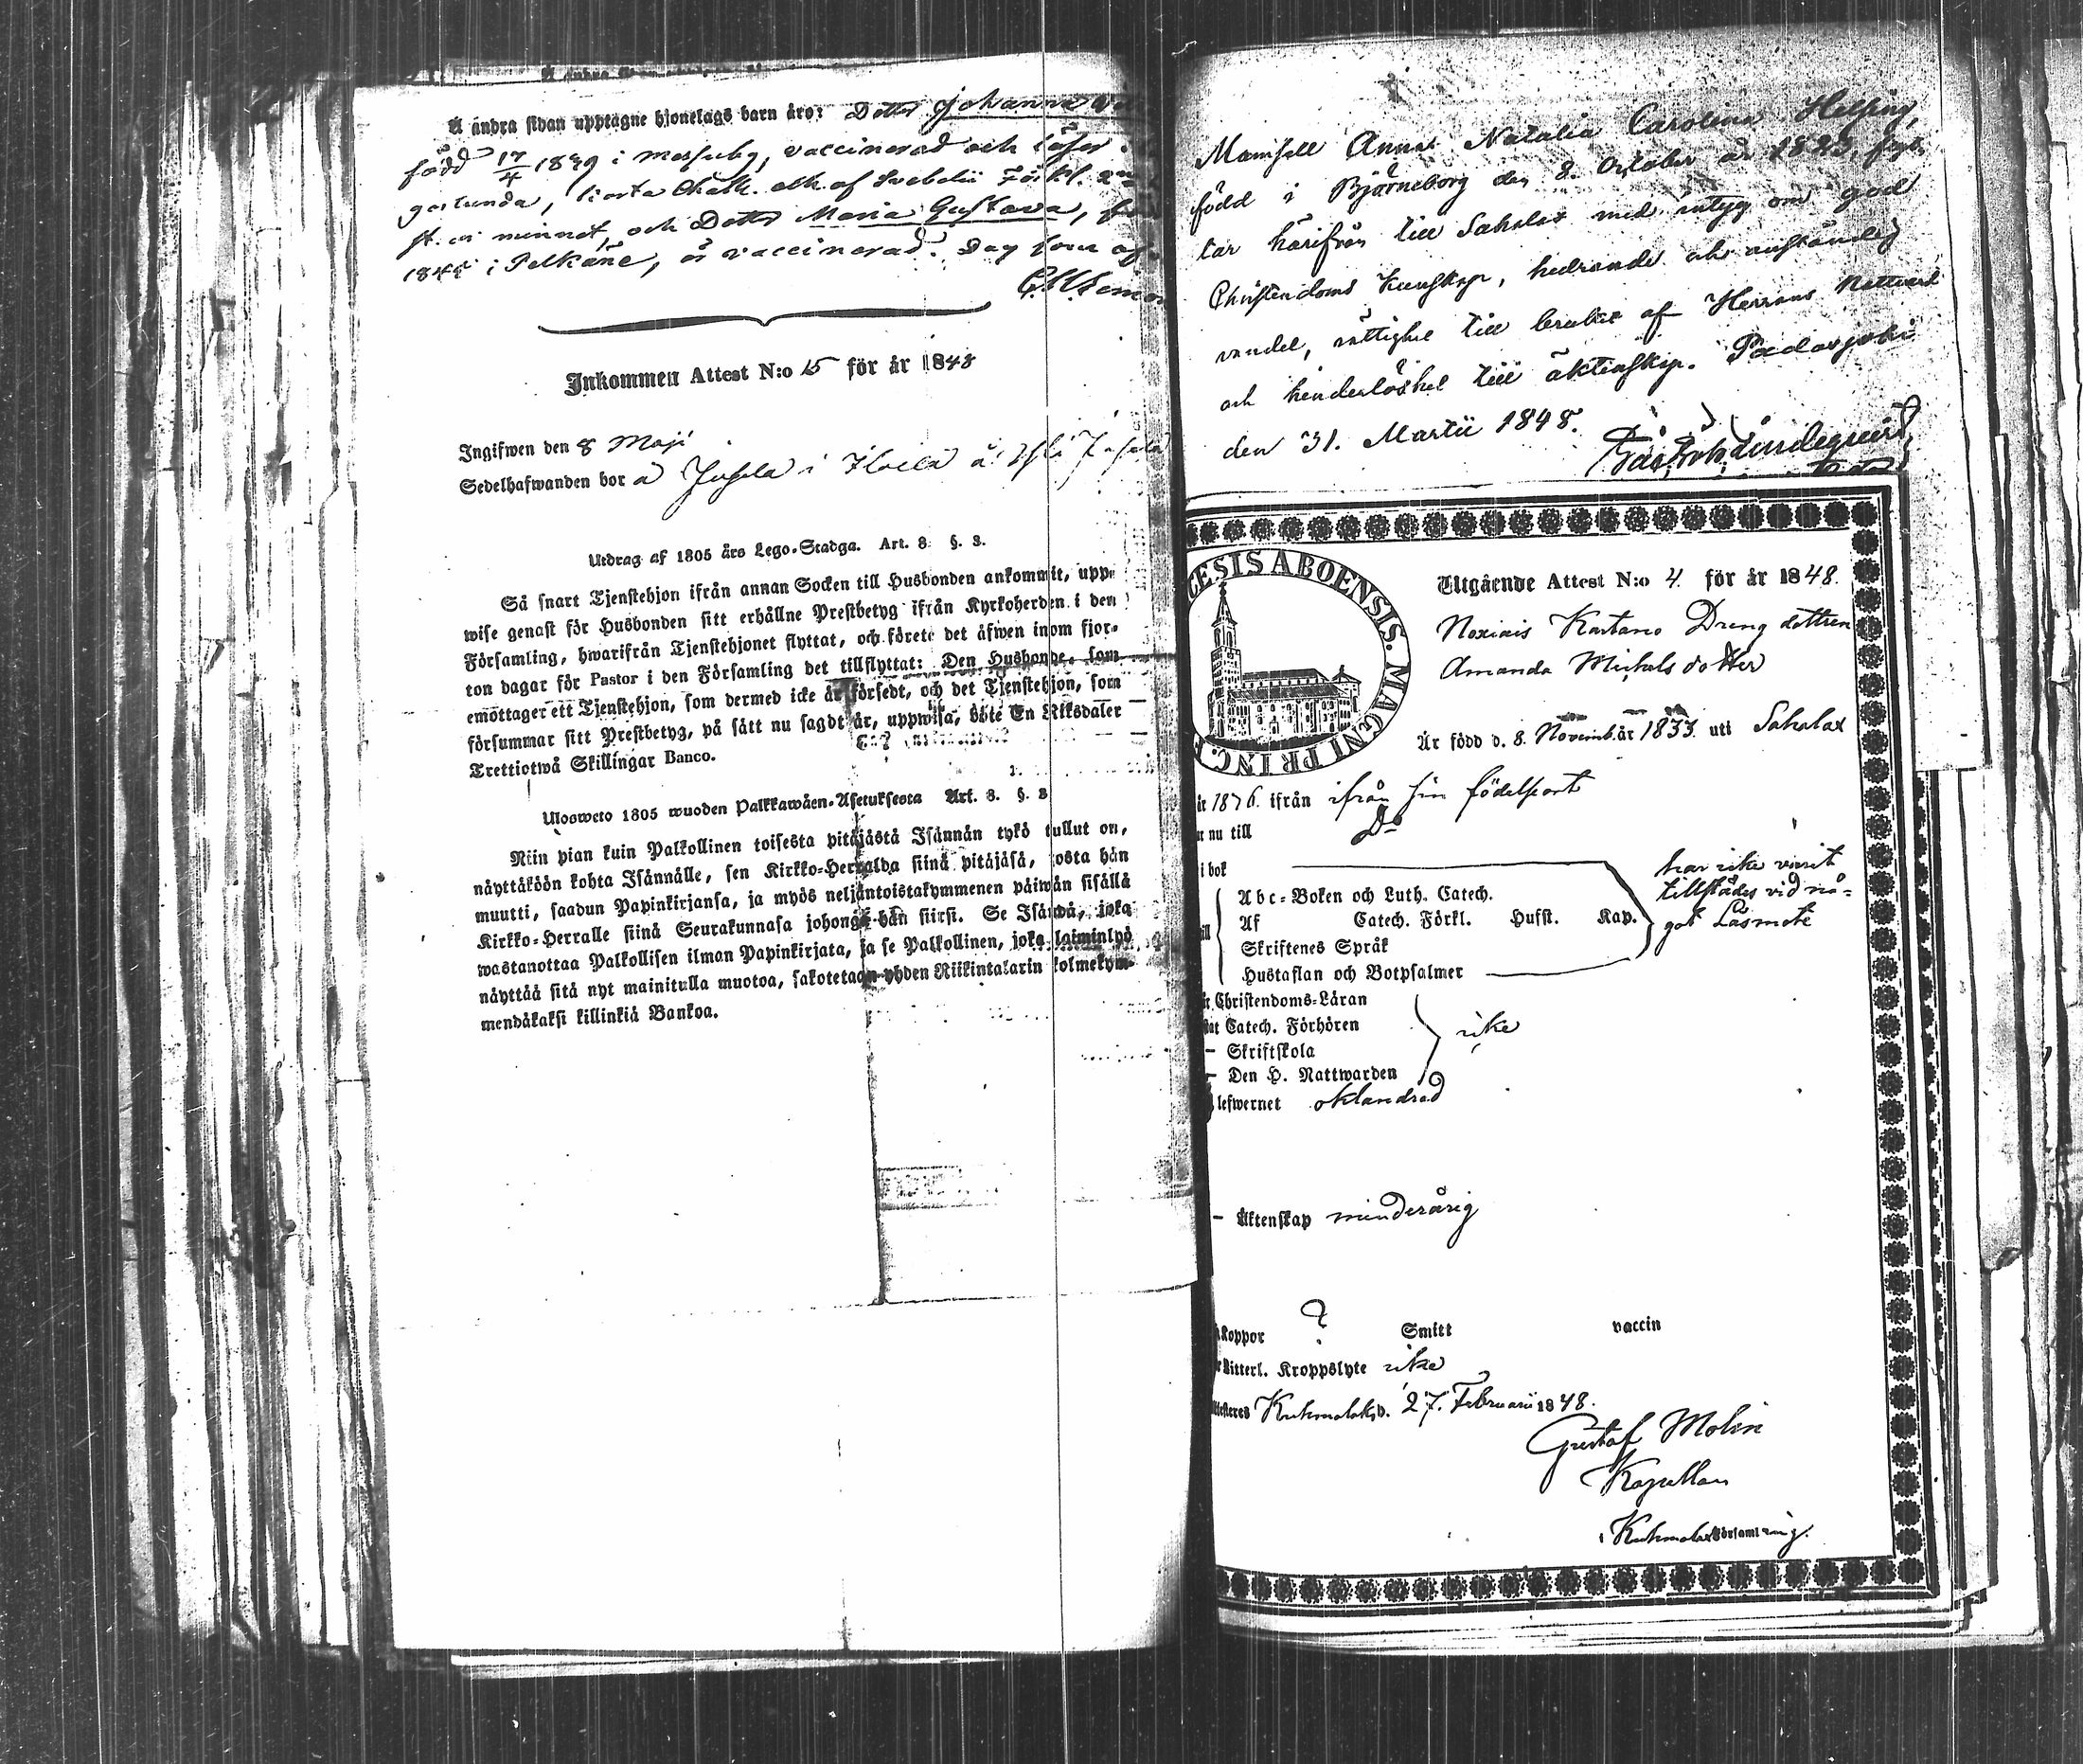 Å andra sidan upptagne hjonelags barn äro: Dotter Johanna
född 17/4 1839 i Messuby, vaccinerad och läser
st. ur minnet, och Dotter Maria Gustava,
184 i Pelkäne, är vaccinerad. Dag som of
Inkommen Attest N:o 15 för år 1848
Ingifwen den 8 Maji
Sedelhafwanden bor å Jussila i
Utdrag af 1805 års Lego-Stadga. Art. 8. §. 3.
Så snart Tjenstehjon ifrån annan Socken till Husbonden ankommit, upp-
wise genast för Husbonden sitt erhållne Prestbetyg ifrån Kyrkoherden i den
Församling, hwarifrån Tjenstehjonet flyttat, och förete det äfwen inom fjor-
ton dagar för Pastor i den Församling det tillflyttat: Den Husbonde, som
emottager ett Tjenstehjon, som dermed icke är försedt, och det Tjenstehjon, som
försummar sitt Prestbetyg, på sätt nu sagdt är, uppwisa, böte En Riksdaler
Trettiotwå Skillingar Banco.
Ulosweto 1805 wuoden Palkkawäen-Asetuksesta Art. 8. §. 3
Niin pian kuin Palkollinen toisesta pitäjästä Isännän tykö tullut on,
näyttäköön kohta Isännälle, sen Kirkko-Herralda siinä pitäjäsä, josta hän
muutti, saadun Papinkirjansa, ja myös neljäntoistakymmenen päiwän sisällä
Kirkko-Herralle siinä Seurakunnasa johonga hän siirsi. Se Isändä, joka
wastanottaa Palkollisen ilman Papinkirjata, ja se Palkollinen, joka laiminlyö
näyttää sitä nyt mainitulla muotoa, sakotetaan yhden Riikintalarin kolmekym-
mendäkaksi killinkiä Bankoa.
Mamsell Anna Natalia Carolina Helsing,
född i Björneborg den 8. October år 1823,
tar härifrån till Sahalax med intyg om god
Christendoms kunskap, hedrande och anständig
vandel, rättighet till bruket af Herrans Nattvard
och hinderlöshet till äktenskap. Padasjoki
den 31. Martii 1848.
CESIS ABOENSIS. MAGNI PRINC.
Utgående Attest N:o 4. för år 1848.
Kartano Dreng dottren
Amanda Michelsdotter
Är född d. 8. Novemb. år 1833. uti Sahalax
ifrån ifrån sin födelseort
nu till Do
i bok
Abc-Boken och Luth. Catech.
Af Catech. Förkl. Husst. Kap.
Skriftenes Språk
Hustaflan och Botpsalmer
har icke varit
tillstädes vid nå-
got Läsmöte
Christendoms-Läran
Catech. Förhören
– Skriftskola
– Den H. Nattwarden
icke
lefwernet oklandrad
– Äktenskap minderårig
koppor ? Smitt vaccin
Litterl. Kroppslyte icke
Kuhmalaks d. 27. Februarii 1848.
Gustaf Molin
Kapellan
i Kuhmalax Församling.